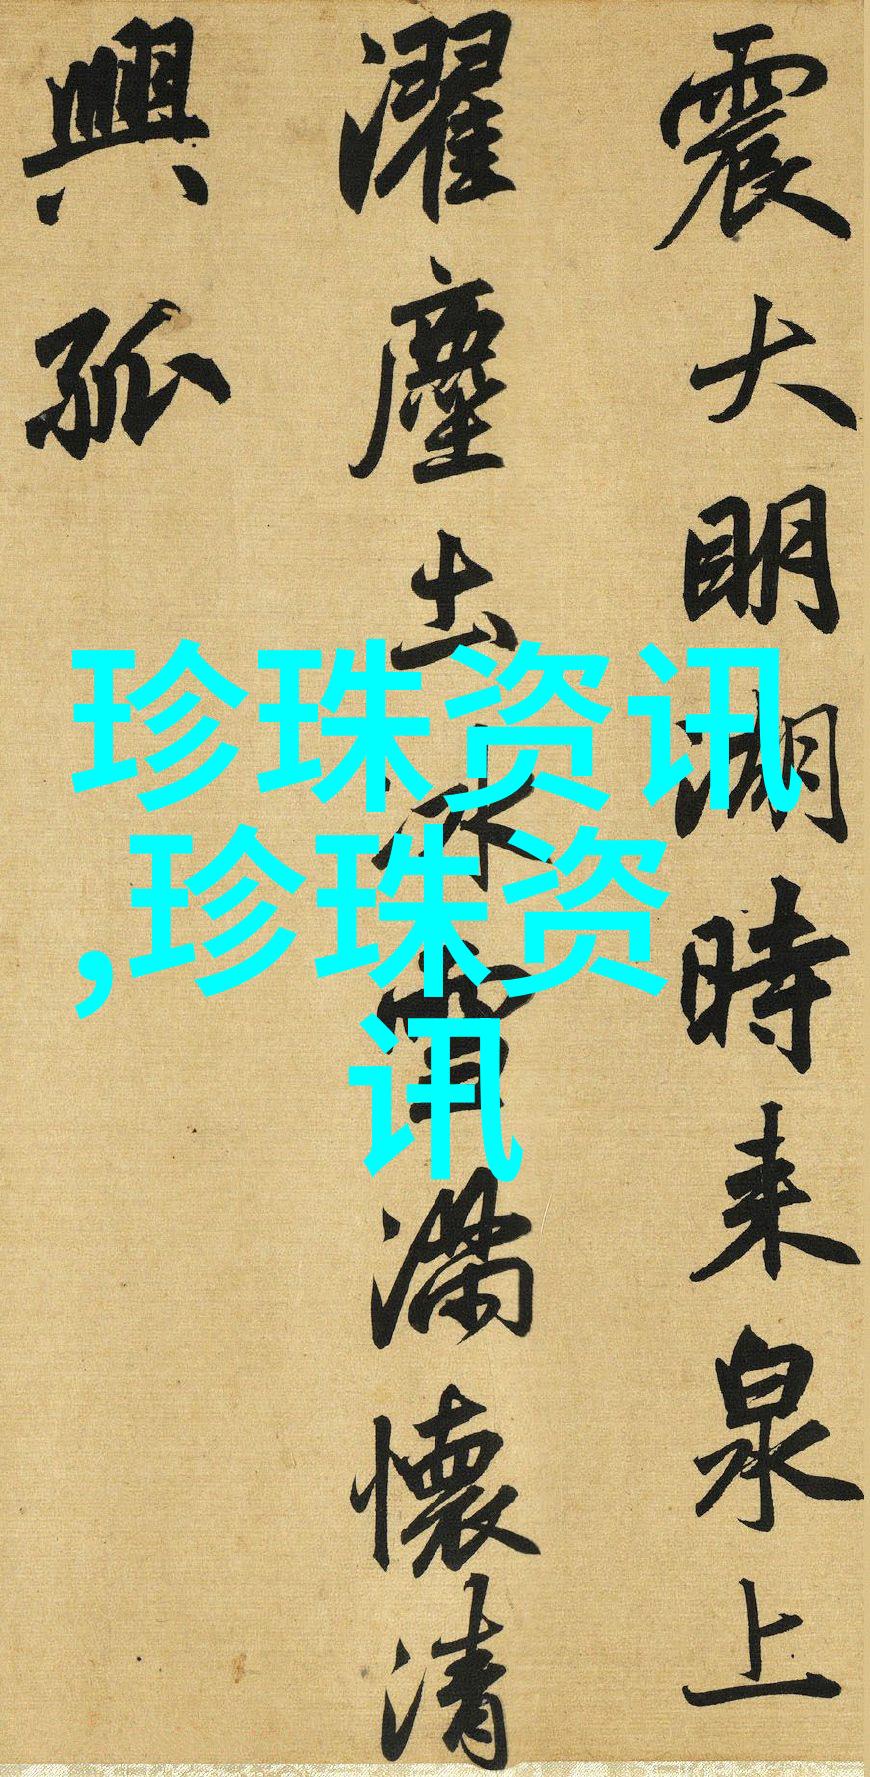 震大明湖時来泉上
濯塵土冰雪滿懷清
興孤
珍珠资讯
,珍珠资
讯